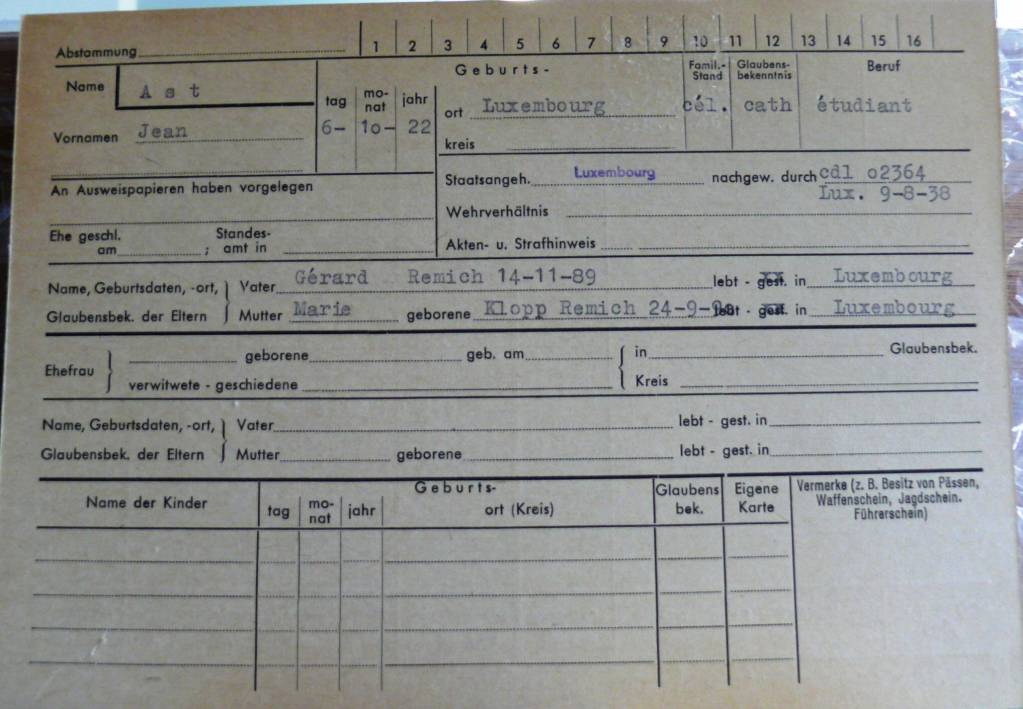 Abstammung 1 2 3 4 5 6 7 8 9 10 11 12 13 14 15 16
Name Ast Geburts- Famil.-Stand Glaubens-bekenntnis Beruf
tag mo-nat jahr ort Luxembourg cél. cath étudiant
Vornamen Jean 6- 1o- 22 kreis
An Ausweispapieren haben vorgelegen
Staatsangeh. Luxembourg nachgew. durch cdl o2364
Lux. 9-8-38
Wehrverhältnis
Ehe geschl. am ; Standes-amt in
Akten- u. Strafhinweis
Name, Geburtsdaten, -ort, Vater Gérard Remich 14-11-89 lebt - gest. in Luxembourg
Glaubensbek. der Eltern Mutter Marie geborene Klopp Remich 24-9- lebt - gest. in Luxembourg
Ehefrau geborene geb. am in Glaubensbek.
verwitwete - geschiedene Kreis
Name, Geburtsdaten, -ort, Vater lebt - gest. in
Glaubensbek. der Eltern Mutter geborene lebt - gest. in
Name der Kinder Geburts- Glaubens bek. Eigene Karte Vermerke (z. B. Besitz von Pässen,
tag mo-nat jahr ort (Kreis) Waffenschein, Jagdschein.
Führerschein)